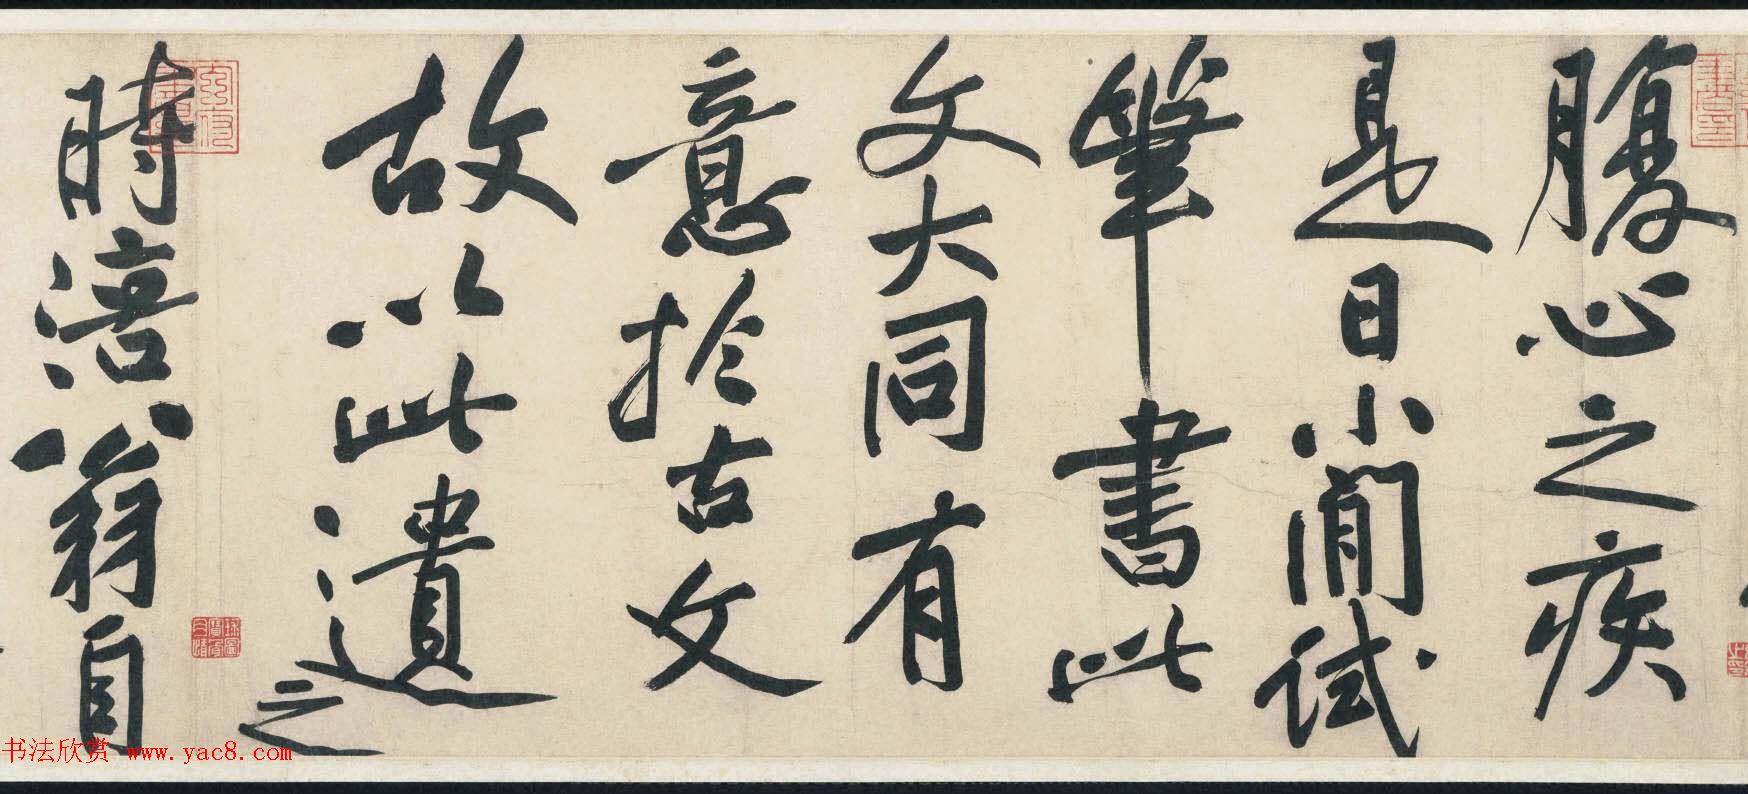 腹心之疾
是日小間試
筆書此
文大同有
意於古文
故以此遺之
時涪翁自
书法欣赏 www.yac8.com